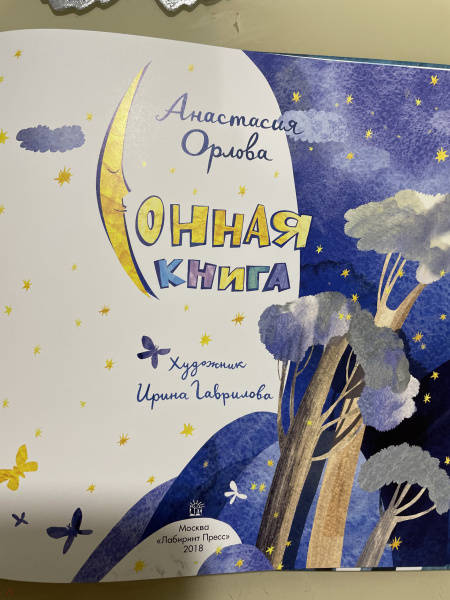 Анастасия
Орлова
Сонная
книга
Художник
Ирина Гаврилова
Москва
«Лабиринт Пресс»
2018